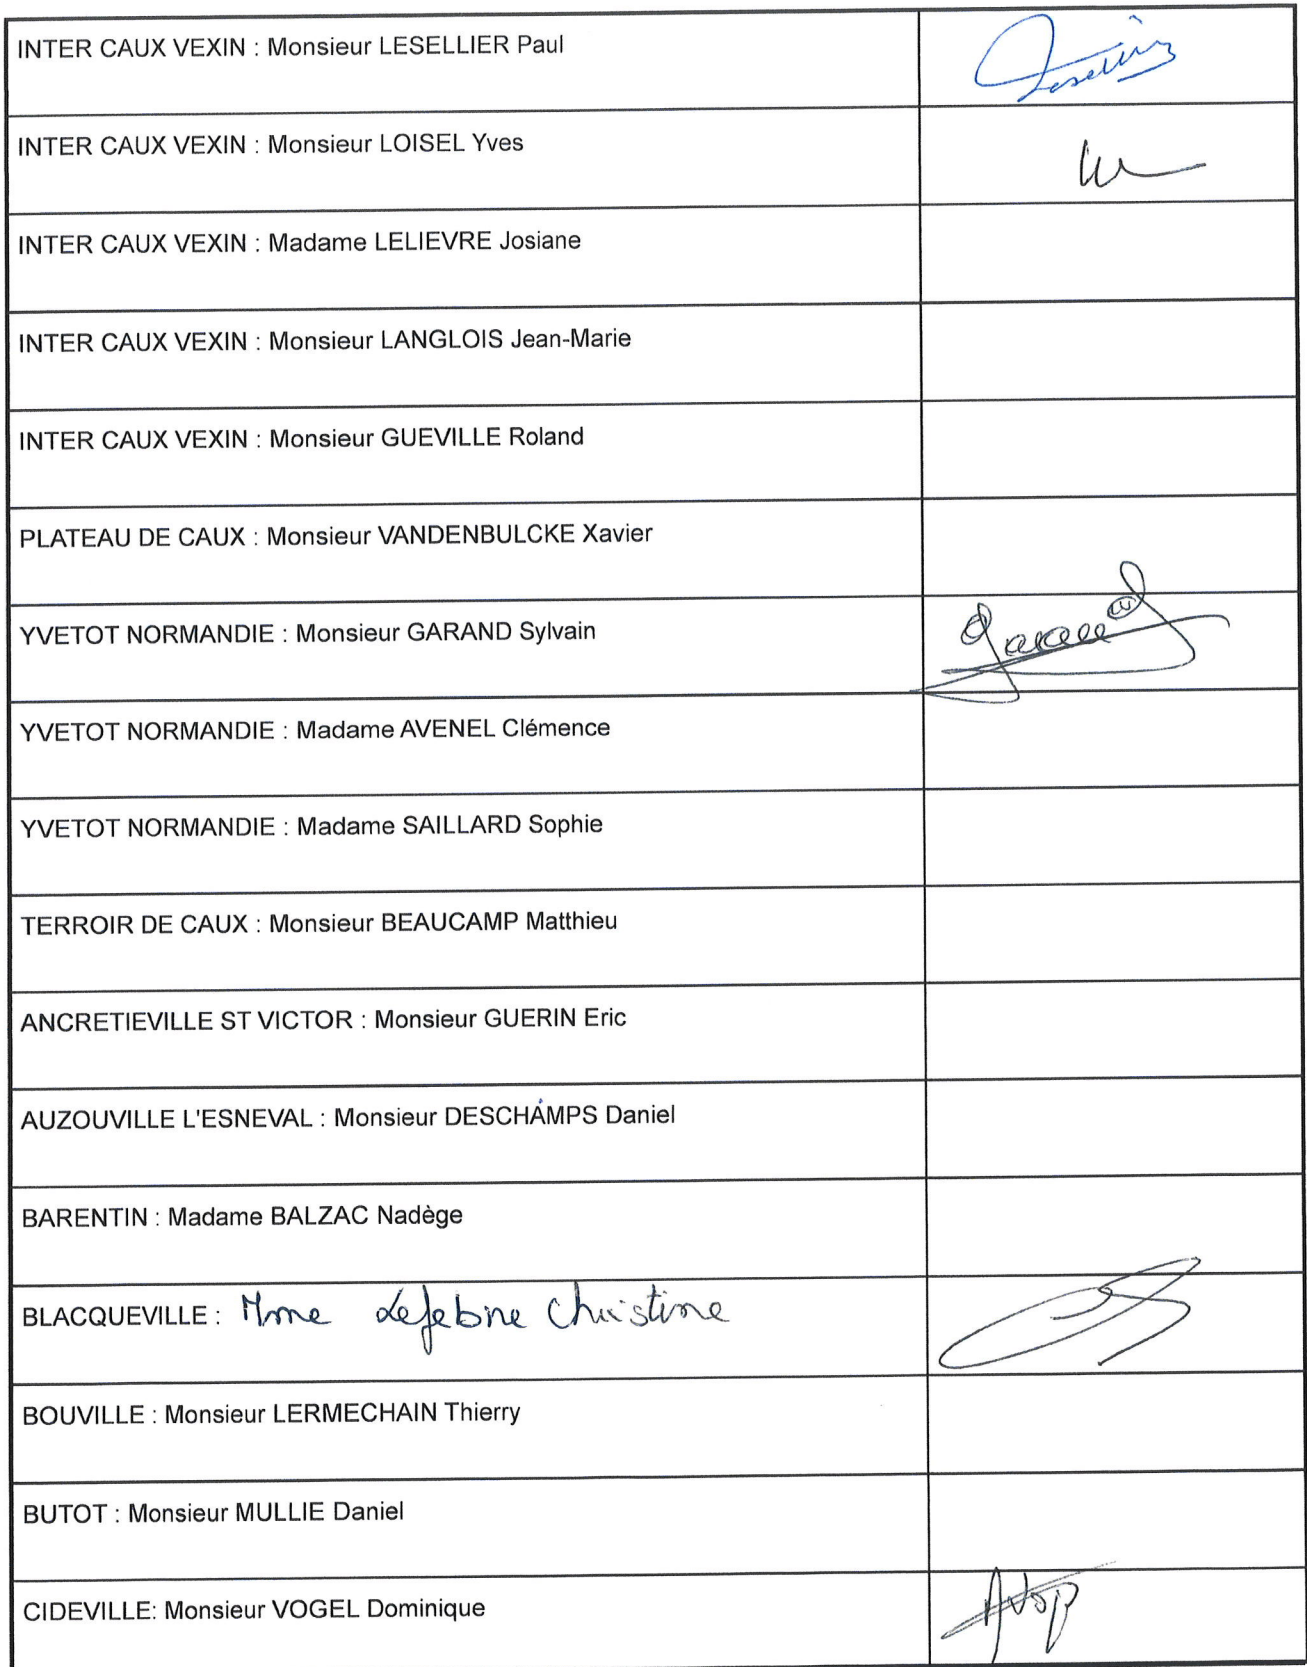 INTER CAUX VEXIN : Monsieur LESELLIER Paul
INTER CAUX VEXIN : Monsieur LOISEL Yves
INTER CAUX VEXIN : Madame LELIEVRE Josiane
INTER CAUX VEXIN : Monsieur LANGLOIS Jean-Marie
INTER CAUX VEXIN : Monsieur GUEVILLE Roland
PLATEAU DE CAUX : Monsieur VANDENBULCKE Xavier
YVETOT NORMANDIE : Monsieur GARAND Sylvain
YVETOT NORMANDIE : Madame AVENEL Clémence
YVETOT NORMANDIE : Madame SAILLARD Sophie
TERROIR DE CAUX : Monsieur BEAUCAMP Matthieu
ANCRETIEVILLE ST VICTOR : Monsieur GUERIN Eric
AUZOUVILLE L'ESNEVAL : Monsieur DESCHAMPS Daniel
BARENTIN : Madame BALZAC Nadège
BLACQUEVILLE : Mme Lefebvre Christine
BOUVILLE : Monsieur LERMECHAIN Thierry
BUTOT : Monsieur MULLIE Daniel
CIDEVILLE: Monsieur VOGEL Dominique